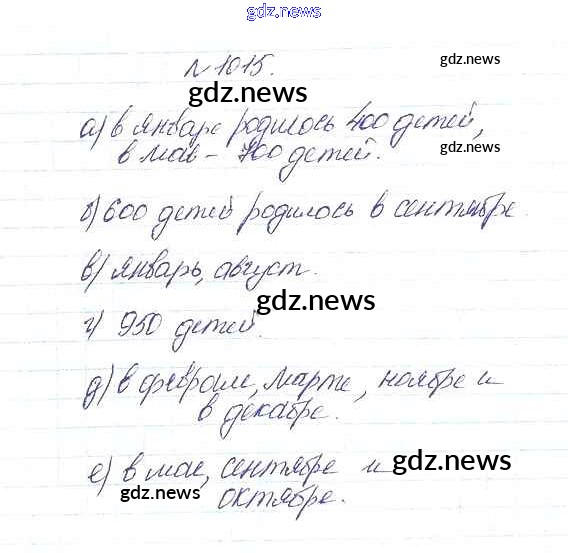 gdz.news
№ 1015.
gdz.news
gdz.news
а) в январе родилось 400 детей,
в мае - 700 детей.
gdz.news
б) 600 детей родилось в сентябре.
в) январь, август.
gdz.news
г) 950 детей.
gdz.news
д) в феврале, марте, ноябре и
в декабре.
gdz.news
е) в мае, сентябре и
октябре.
gdz.news
gdz.news